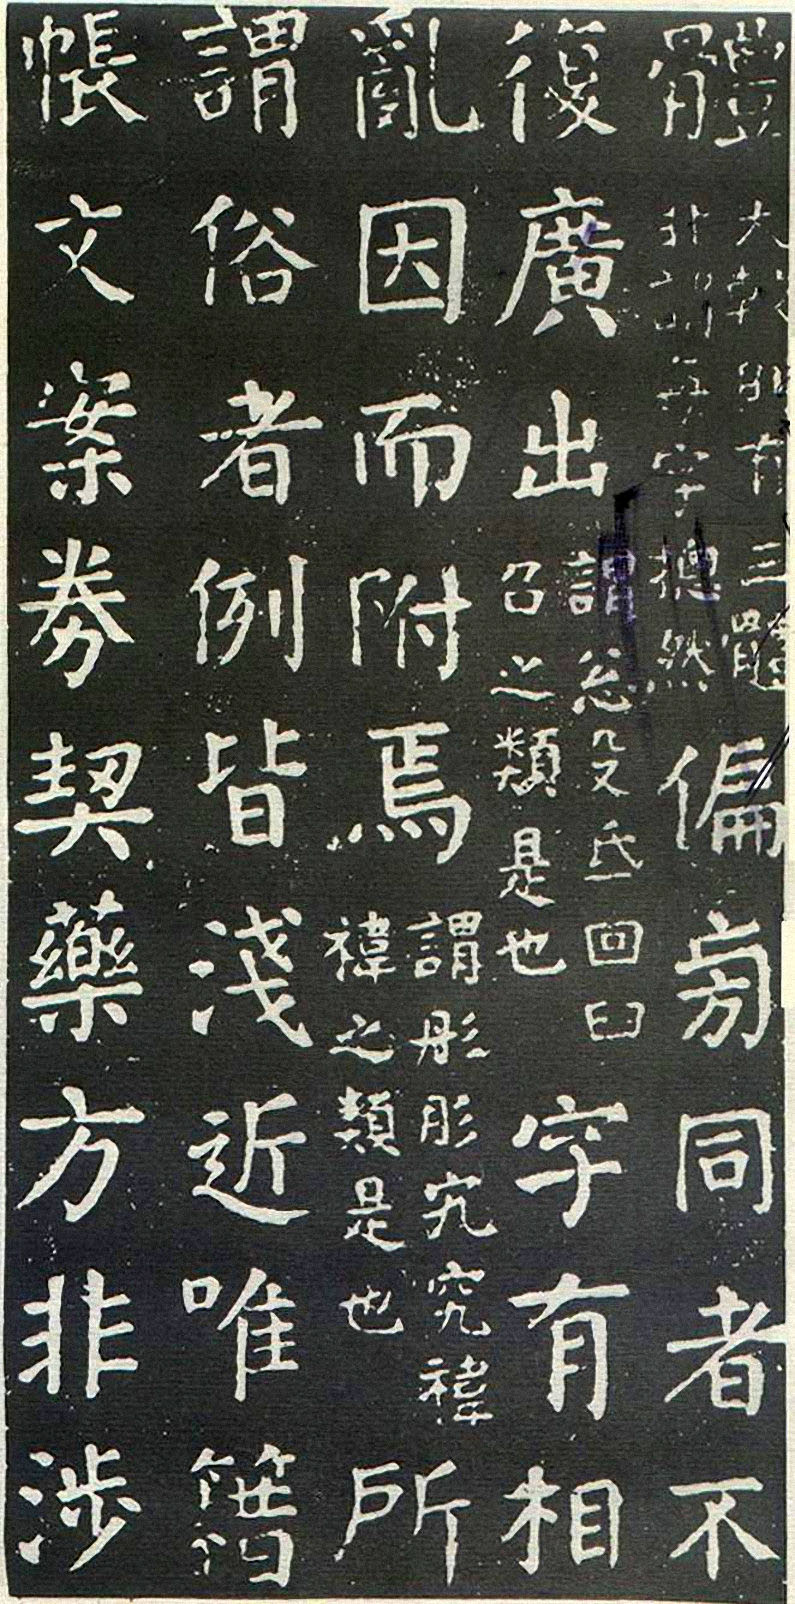 體大較則有三體非謂每字摠然偏旁同者不
復廣出謂忩殳氐回臼召之類是也字有相
亂因而附焉謂彤肜宄究禕褘之類是也所
謂俗者例皆淺近唯籍
帳文案券契藥方非涉